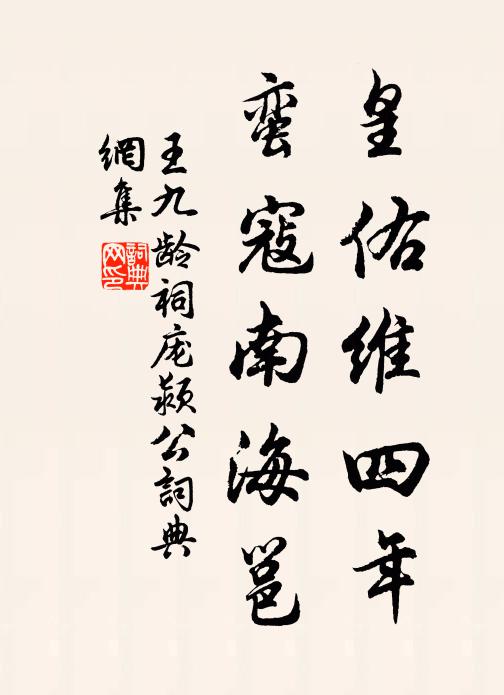 皇佑维四年
蛮寇南海邕
王九龄祠庞颍公詞典
網集
詞典
网印